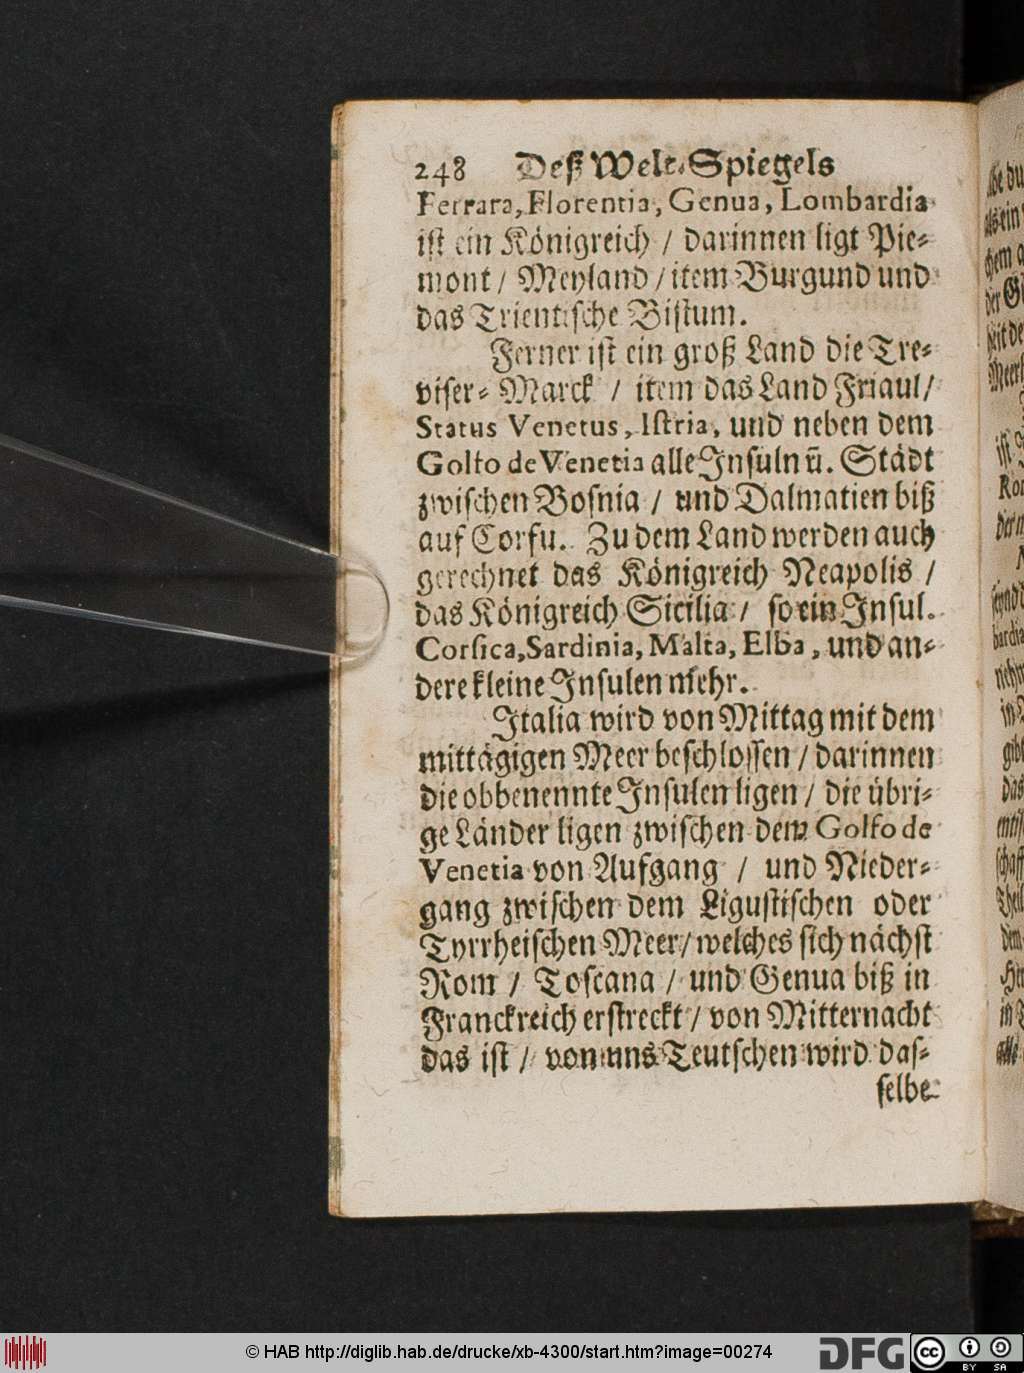 248 Deß Welt-Spiegels
Ferrara, Florentia, Genua, Lombardia
ist ein Königreich / darinnen ligt Pie-
mont / Meyland / item Burgund und
das Trientische Bistum.
Ferner ist ein groß Land die Tre-
viser-Marck / item das Land Friaul /
Status Venetus, Istria, und neben dem
Golfo de Venetia alle Insuln uñ. Städt
zwischen Bosnia / und Dalmatien biß
auf Corfu. Zu dem Land werden auch
gerechnet das Königreich Neapolis /
das Königreich Sicilia / so ein Insul.
Corsica, Sardinia, Malta, Elba, und an-
dere kleine Insulen mehr.
Italia wird von Mittag mit dem
mittägigen Meer beschlossen / darinnen
die obbenennte Insulen ligen / die übri-
ge Länder ligen zwischen dem Golfo de
Venetia von Aufgang / und Nieder-
gang zwischen dem Ligustischen oder
Tyrrheischen Meer / welches sich nächst
Rom / Toscana / und Genua biß in
Franckreich erstreckt / von Mitternacht
das ist / von uns Teutschen wird das-
selbe
© HAB http://diglib.hab.de/drucke/xb-4300/start.htm?image=00274
DFG
cc BY SA